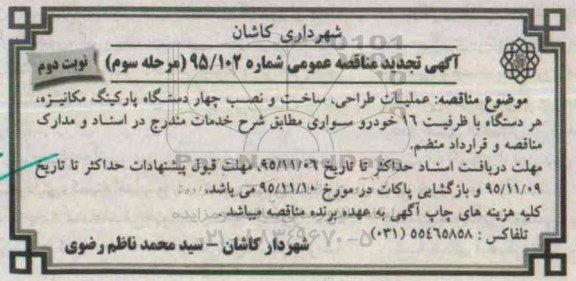 شهرداری کاشان
آگهی تجدید مناقصه عمومی شماره ۹۵/۱۰۲ (مرحله سوم)
نوبت دوم
موضوع مناقصه: عملیات طراحی، ساخت و نصب چهار دستگاه پارکینگ مکانیزه،
هر دستگاه با ظرفیت ۱۶ خودرو سواری مطابق شرح خدمات مندرج در اسناد و مدارک
مناقصه و قرارداد منضم.
مهلت دریافت اسناد حداکثر تا تاریخ ۹۵/۱۱/۰۶، مهلت قبول پیشنهادات حداکثر تا تاریخ
۹۵/۱۱/۰۹ و بازگشایی پاکات در مورخ ۹۵/۱۱/۱۰ می باشد.
کلیه هزینه های چاپ آگهی به عهده برنده مناقصه میباشد.
تلفاکس: ۵۵۴۶۵۸۵۸ (۰۳۱)
شهردار کاشان – سید محمد ناظم رضوی